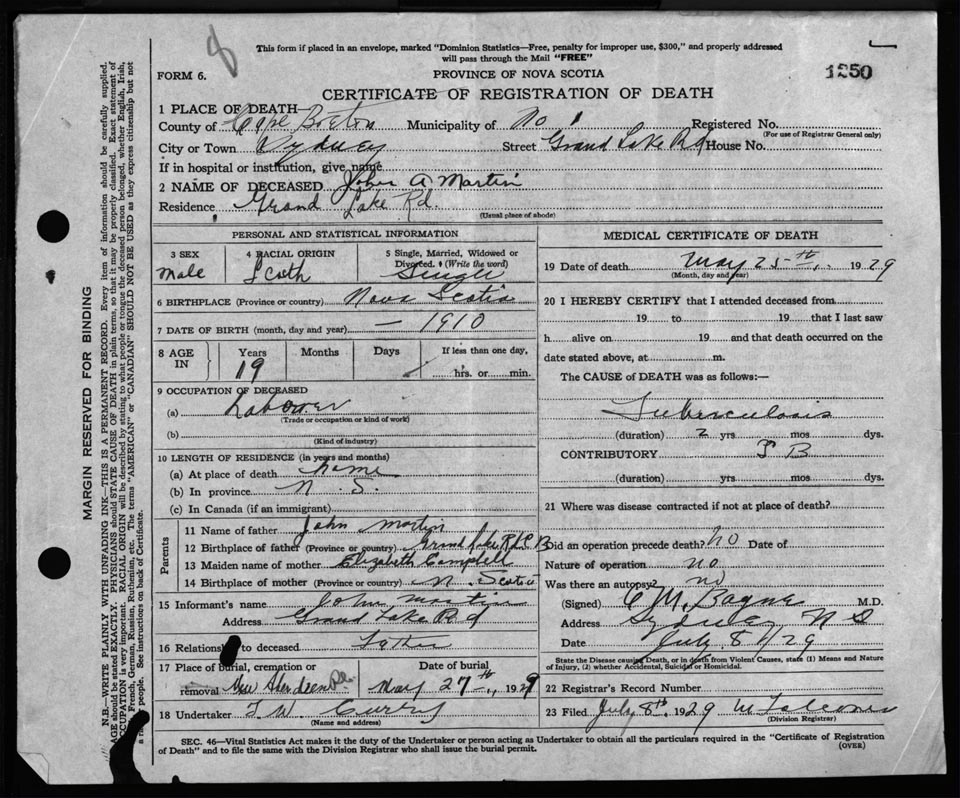 8
This form if placed in an envelope, marked "Dominion Statistics—Free, penalty for improper use, $300," and properly addressed
will pass through the Mail "FREE"
FORM 6.
PROVINCE OF NOVA SCOTIA
1250
CERTIFICATE OF REGISTRATION OF DEATH
1 PLACE OF DEATH—
County of Cape Breton Municipality of No 1 Registered No.
(For use of Registrar General only)
City or Town Sydney Street Grand Lake Rd House No.
If in hospital or institution, give name
2 NAME OF DECEASED John A Martin
Residence Grand Lake Rd.
(Usual place of abode)
PERSONAL AND STATISTICAL INFORMATION
3 SEX Male
4 RACIAL ORIGIN Scoth
5 Single, Married, Widowed or
Divorced. (Write the word)
Single
6 BIRTHPLACE (Province or country) Nova Scotia
7 DATE OF BIRTH (month, day and year) — 1910
8 AGE IN Years 19 Months Days If less than one day,
hrs. or min.
9 OCCUPATION OF DECEASED
(a) Labourer
(Trade or occupation or kind of work)
(b)
(Kind of industry)
10 LENGTH OF RESIDENCE (in years and months)
(a) At place of death home
(b) In province N. S.
(c) In Canada (if an immigrant)
Parents
11 Name of father John Martin
12 Birthplace of father (Province or country) Grand Lake Rd C B
13 Maiden name of mother Elizabeth Campbell
14 Birthplace of mother (Province or country) N. Scotia
15 Informant's name John Martin
Address Grand Lake Rd
16 Relationship to deceased Father
17 Place of burial, cremation or
removal New Aberdeen
Date of burial
May 27th, 1929
18 Undertaker
(Name and address)
MEDICAL CERTIFICATE OF DEATH
19 Date of death May 25th, 1929
(Month, day and year)
20 I HEREBY CERTIFY that I attended deceased from
19 to 19 that I last saw
h alive on 19 and that death occurred on the
date stated above, at m.
The CAUSE of DEATH was as follows:—
Tuberculosis
(duration) 2 yrs mos dys.
CONTRIBUTORY T B
(duration) yrs mos dys.
21 Where was disease contracted if not at place of death?
Did an operation precede death? no Date of
Nature of operation no
Was there an autopsy? no
(Signed) M.D.
Address Sydney N S
Date July 8/29
State the Disease causing Death, or in death from Violent Causes, state (1) Means and Nature
of Injury, (2) whether Accidental, Suicidal or Homicidal.
22 Registrar's Record Number
23 Filed July 8th, 1929
(Division Registrar)
SEC. 46—Vital Statistics Act makes it the duty of the Undertaker or person acting as Undertaker to obtain all the particulars required in the "Certificate of Registration
of Death" and to file the same with the Division Registrar who shall issue the burial permit.
(OVER)
MARGIN RESERVED FOR BINDING
N.B.—WRITE PLAINLY WITH UNFADING INK—THIS IS A PERMANENT RECORD. Every item of information should be carefully supplied.
AGE should be stated EXACTLY. PHYSICIANS should STATE CAUSE OF DEATH in plain terms, so that it may be properly classified. Exact statement of
OCCUPATION is very important. RACIAL ORIGIN will be described by stating to what people or tongue the deceased person belonged, whether English, Irish,
French, German, Russian, Ruthenian, etc. The terms "AMERICAN" or "CANADIAN" SHOULD NOT BE USED as they express citizenship but not
a people. See instructions on back of Certificate.